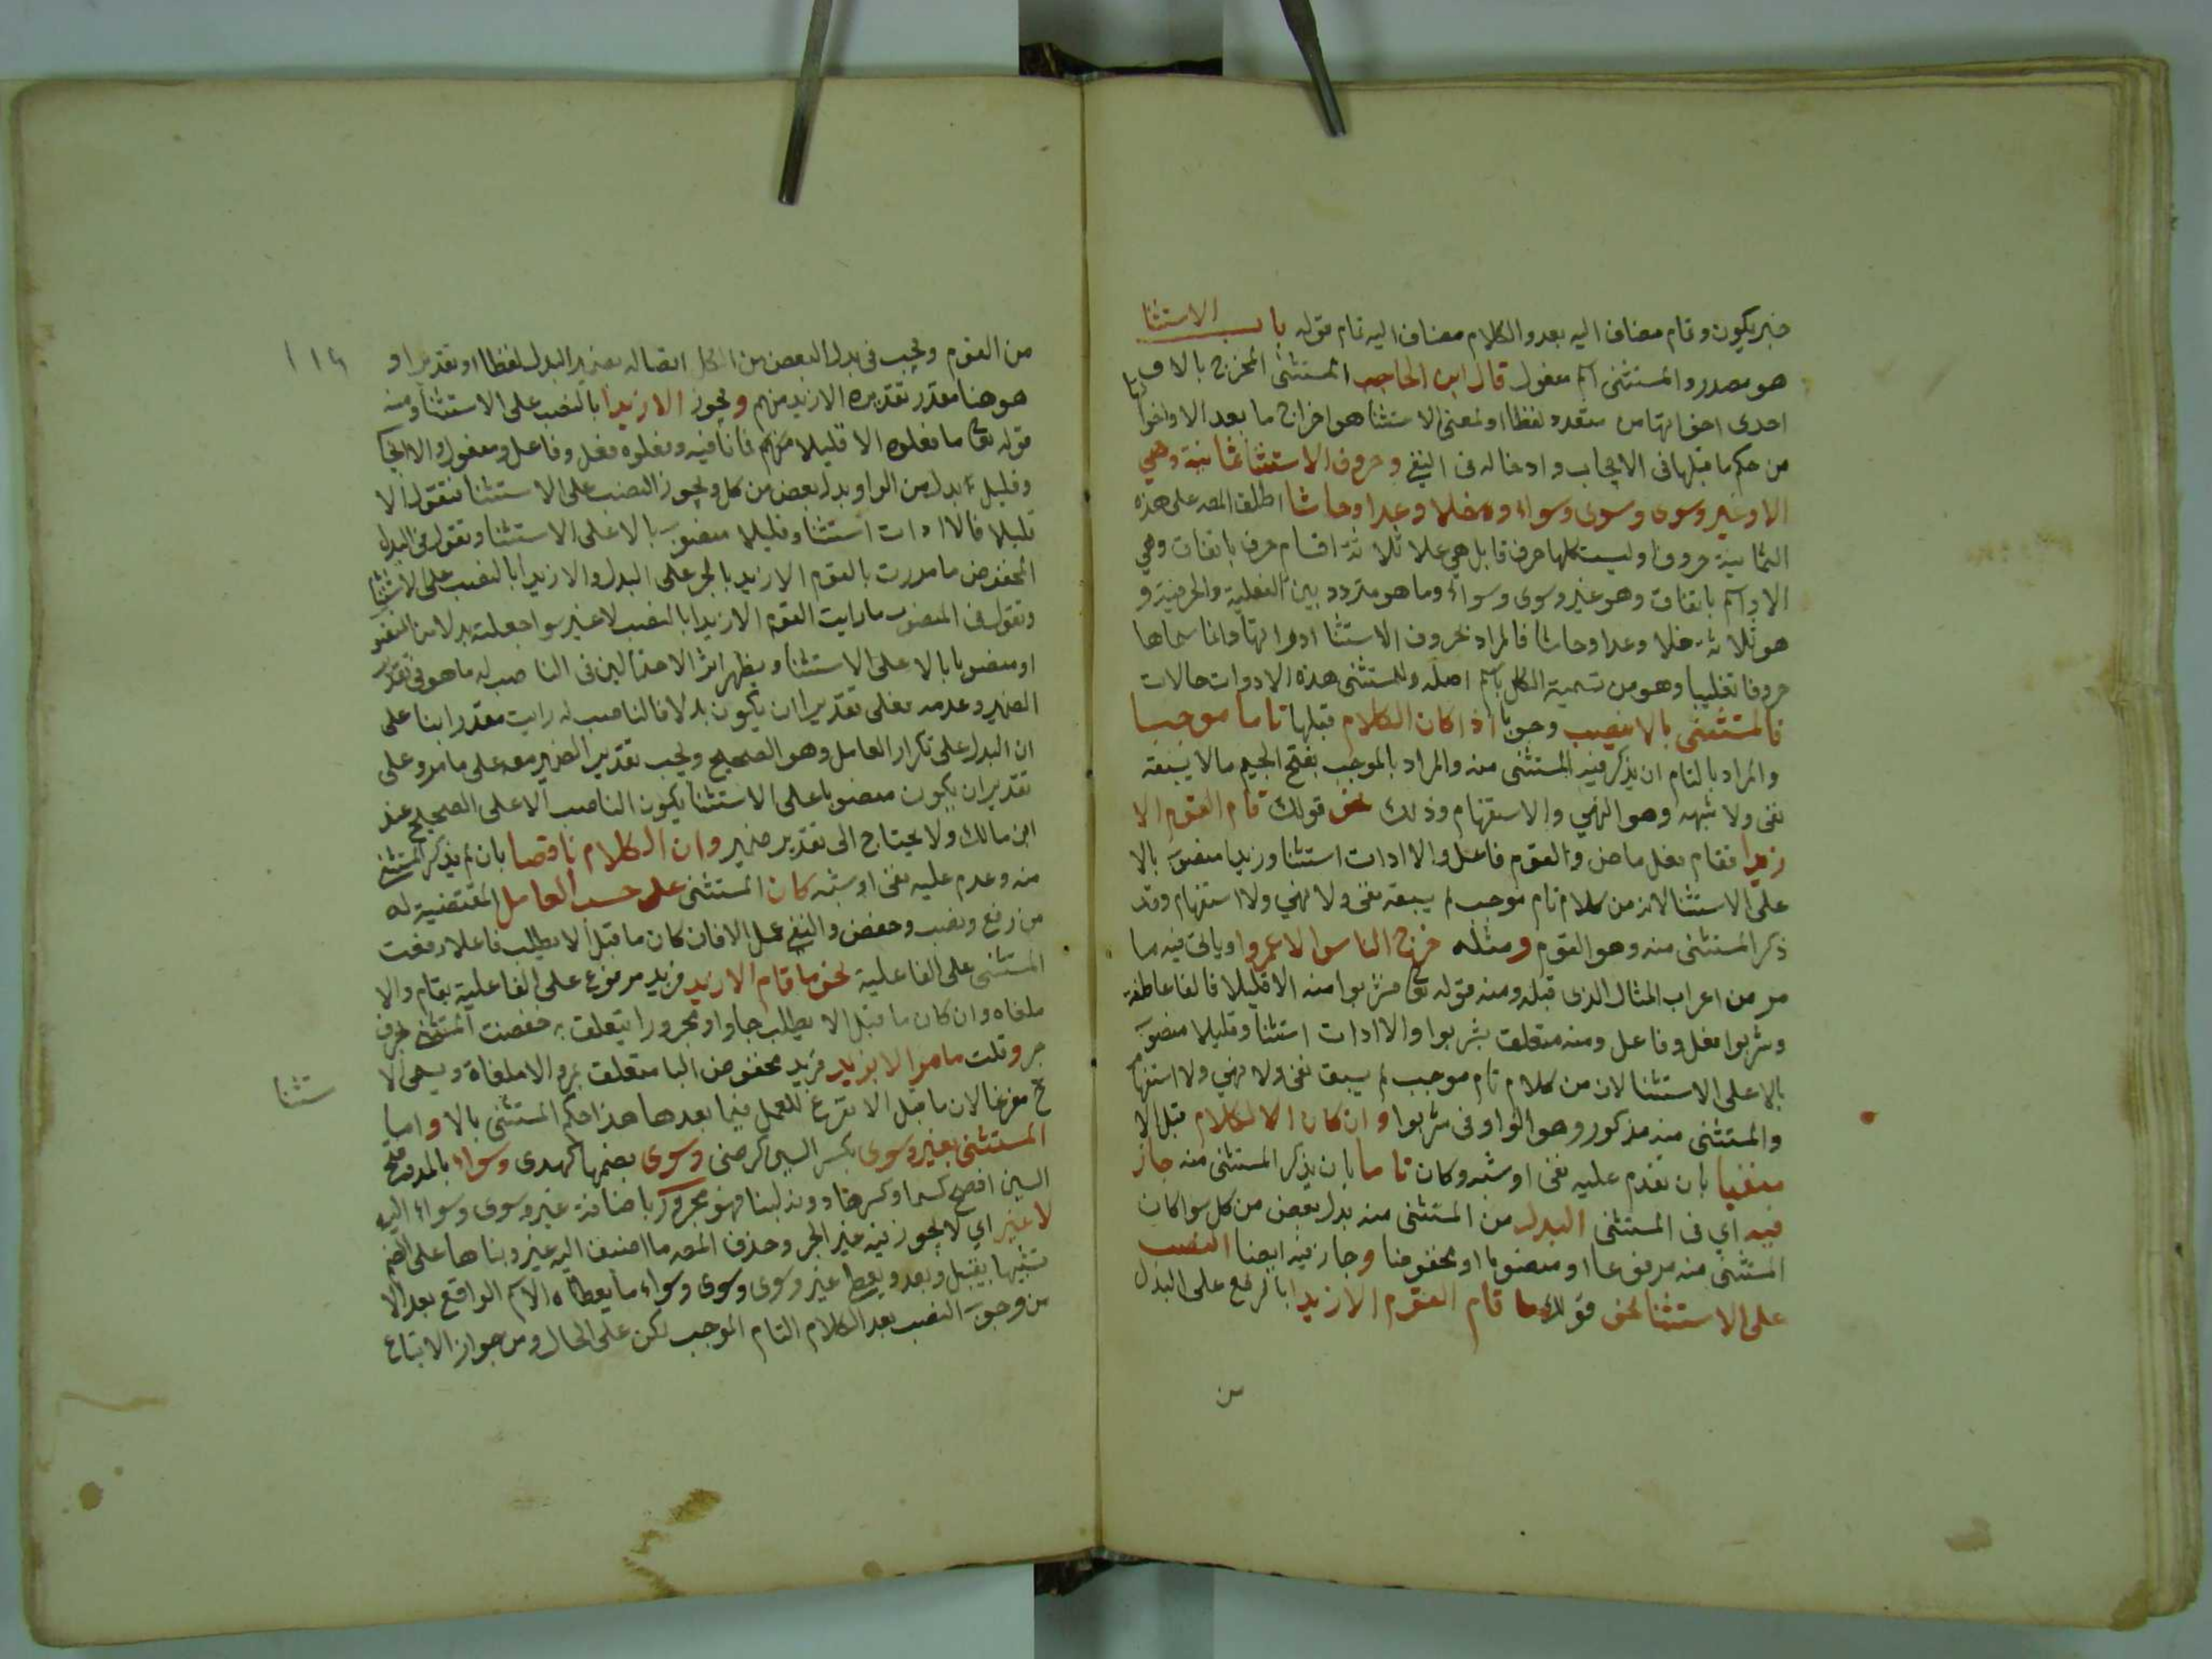 خبر يكون وتام مضاف اليه بعد والكلام مضاف اليه تام قوله باب الاستثنا
هو مصدر والمستثنى اسم مفعول قال ابن الحاجب المستثنى المخرج بالا او
احدى اخواتها من متعدد لفظا او لمعنى الاستثنا هو اخراج ما بعد الا واخواتها
من حكم ما قبلها فى الايجاب وادخاله فى النفي وحروف الاستثنا ثمانية وهي
الا وغير وسوى وسوى وسواء وخلا وعدا وحاشا اطلق المص على هذه
الثمانية حروفا وليست كلها حرفا بل هي على ثلاثة اقسام حرف باتفاق وهي
الا واسم باتفاق وهو غير وسوى وسواء وما هو متردد بين الفعلية والحرفية و
هو ثلاثة خلا وعدا وحاشا فالمراد بحروف الاستثنا ادواتها وانما سماها
حروفا تغليبا وهو من تسمية الكل باسم اصله وللمستثنى هذه الادوات حالات
فالمستثنى بالا ينصب وجوبا اذا كان الكلام قبلها تاما موجبا
والمراد بالتام ان يذكر فيه المستثنى منه والمراد بالموجب بفتح الجيم مالا يسبقه
نفى ولا شبهه وهو النهي والاستفهام وذلك نحو قولك قام القوم الا
زيدا فقام فعل ماض والقوم فاعل والا ادات استثنا وزيدا منصوب بالا
على الاستثنا لانه من كلام تام موجب لم يسبقه نفى ولا نهي ولا استفهام وقد
ذكر المستثنى منه وهو القوم ومثله خرج الناس الا عمروا وياتى فيه ما
مر من اعراب المثال الذى قبله ومنه قوله تع فشربوا منه الا قليلا فالفا عاطفة
وشربوا فعل وفاعل ومنه متعلق بشربوا والا ادات استثنا وقليلا منصوب
بالا على الاستثنا لانه من كلام تام موجب لم يسبق نفى ولا نهي ولا استفهام
والمستثنى منه مذكور وهو الواو فى شربوا وان كان الكلام قبل الا
منفيا بان تقدم عليه نفى او شبه وكان تاما بان يذكر المستثنى منه جاز
فيه اي فى المستثنى البدل من المستثنى منه بدل بعض من كل سوا كان
المستثنى منه مرفوعا او منصوبا او مخفوضا وجاز فيه ايضا النصب
على الاستثنا نحو قولك ما قام القوم الا زيدا بالرفع على البدل
من
١١٤
من القوم ويجب فى بدل البعض من الكل اتصاله بضمير البدل لفظا او تقديرا و
هو هنا مقدر تقديره الا زيد منهم ويجوز الا زيدا بالنصب على الاستثنا ومنه
قوله تع ما فعلوه الا قليلا منهم فما نافيه وفعلوه فعل وفاعل ومفعول والا ايجاب
وقليل بدل من الواو بدل بعض من كل ويجوز النصب على الاستثنا فتقول الا
قليلا فالا ادات استثنا وقليلا منصوب بالا على الاستثنا وتقول فى البدل
المخفوض ما مررت بالقوم الا زيد بالجر على البدل والا زيدا بالنصب على الاستثنا
وتقول فى المنصوب ما رايت القوم الا زيدا بالنصب لا غير سوا جعلته بدلا من المنصوب
او منصوبا بالا على الاستثنا ويظهر اثر الاحتمالين فى الناصب له ما هو فى تقدير
الضمير وعدمه فعلى تقدير ان يكون بدلا فالناصب له رايت مقدرا بنا على
ان البدل على تكرار العامل وهو الصحيح ويجب تقدير الضمير معه على ما مر وعلى
تقدير ان يكون منصوبا على الاستثنا يكون الناصب الا على الصحيح عند
ابن مالك ولا يحتاج الى تقدير ضمير وان الكلام ناقصا بان لم يذكر المستثنى
منه وعدم عليه نفى او شبه كان المستثنى على حسب العامل المقتضية له
من رفع ونصب وخفض والنفي عمل الا فان كان ما قبل الا يطلب فاعلا رفعت
المستثنى على الفاعلية نحو ما قام الا زيد فزيد مرفوع على الفاعلية بقام والا
ملغاه وان كان ما قبل الا يطلب جارا ومجرورا يتعلق به خفضت المستثنى بحرف
جر وقلت ما مر الا بزيد فزيد مخفوض البا متعلق بمر والا ملغاة ويسمى الاستثنا
ح مفرغا لان ما قبل الا تفرغ للعمل فيما بعدها هذا حكم المستثنى بالا واما
المستثنى بغير وسوى بكسر السين كرضى وسوى بضمها كهدى وسواء بالمد وفتح
السين افصح كسما وكسرها ... فهو مجرور باضافة غير وسوى وسواء اليه
لا غير اي لا يجوز فيه غير الجر وحذف المص ما اضيف اليه غير وبناها على الضم
تشبيها بقبل وبعد ويعطى غير وسوى وسوى وسواء ما يعطاه الاسم الواقع بعد الا
من وجوب النصب بعد الكلام التام الموجب لكن على الحال ومن جواز الاتباع